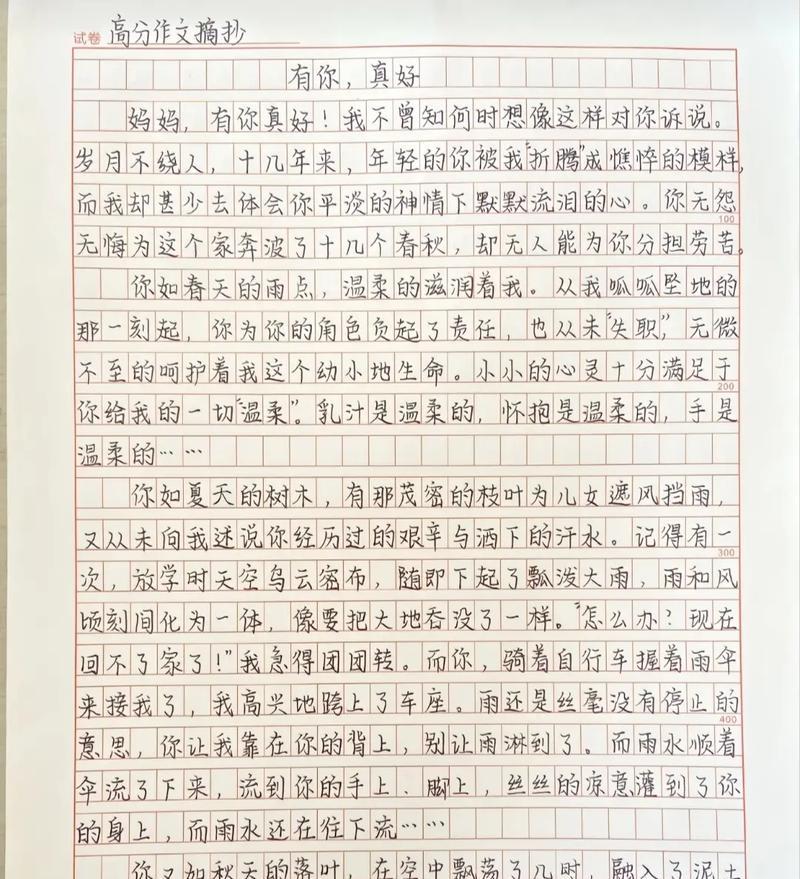 试卷 高分作文摘抄
有你，真好
妈妈，有你真好！我不曾知何时想像这样对你诉说。
岁月不绕人，十几年来，年轻的你被我“折腾”成憔悴的模样，
而我却甚少去体会你平淡的神情下默默流泪的心。你无怨
100
无悔为这个家奔波了十几个春秋，却无人能为你分担劳苦。
你如春天的雨点，温柔的滋润着我。从我呱呱坠地的
那一刻起，你为你的角色负起了责任，也从未“失职”，无微
不至的呵护着我这个幼小地生命。小小的心灵十分满足于
200
你给我的一切“温柔”。乳汁是温柔的，怀抱是温柔的，手是
温柔的……
你如夏天的树木，有那茂密的枝叶为儿女遮风挡雨，
又从未向我述说你经历过的艰辛与洒下的汗水。记得有一
300
次，放学时天空乌云密布，随即下起了瓢泼大雨，雨和风
顷刻间化为一体，像要把大地吞没了一样。“怎么办？现在
回不了家了！”我急得团团转。而你，骑着自行车握着雨伞
来接我了，我高兴地跨上了车座。雨还是丝毫没有停止的
400
意思，你让我靠在你的背上，别让雨淋到了。而雨水顺着
伞流了下来，流到你的手上、脚上，丝丝的凉意灌到了你
的身上，而雨水还在往下流……
你又如秋天的落叶，在空中飘荡了几时，融入了泥土